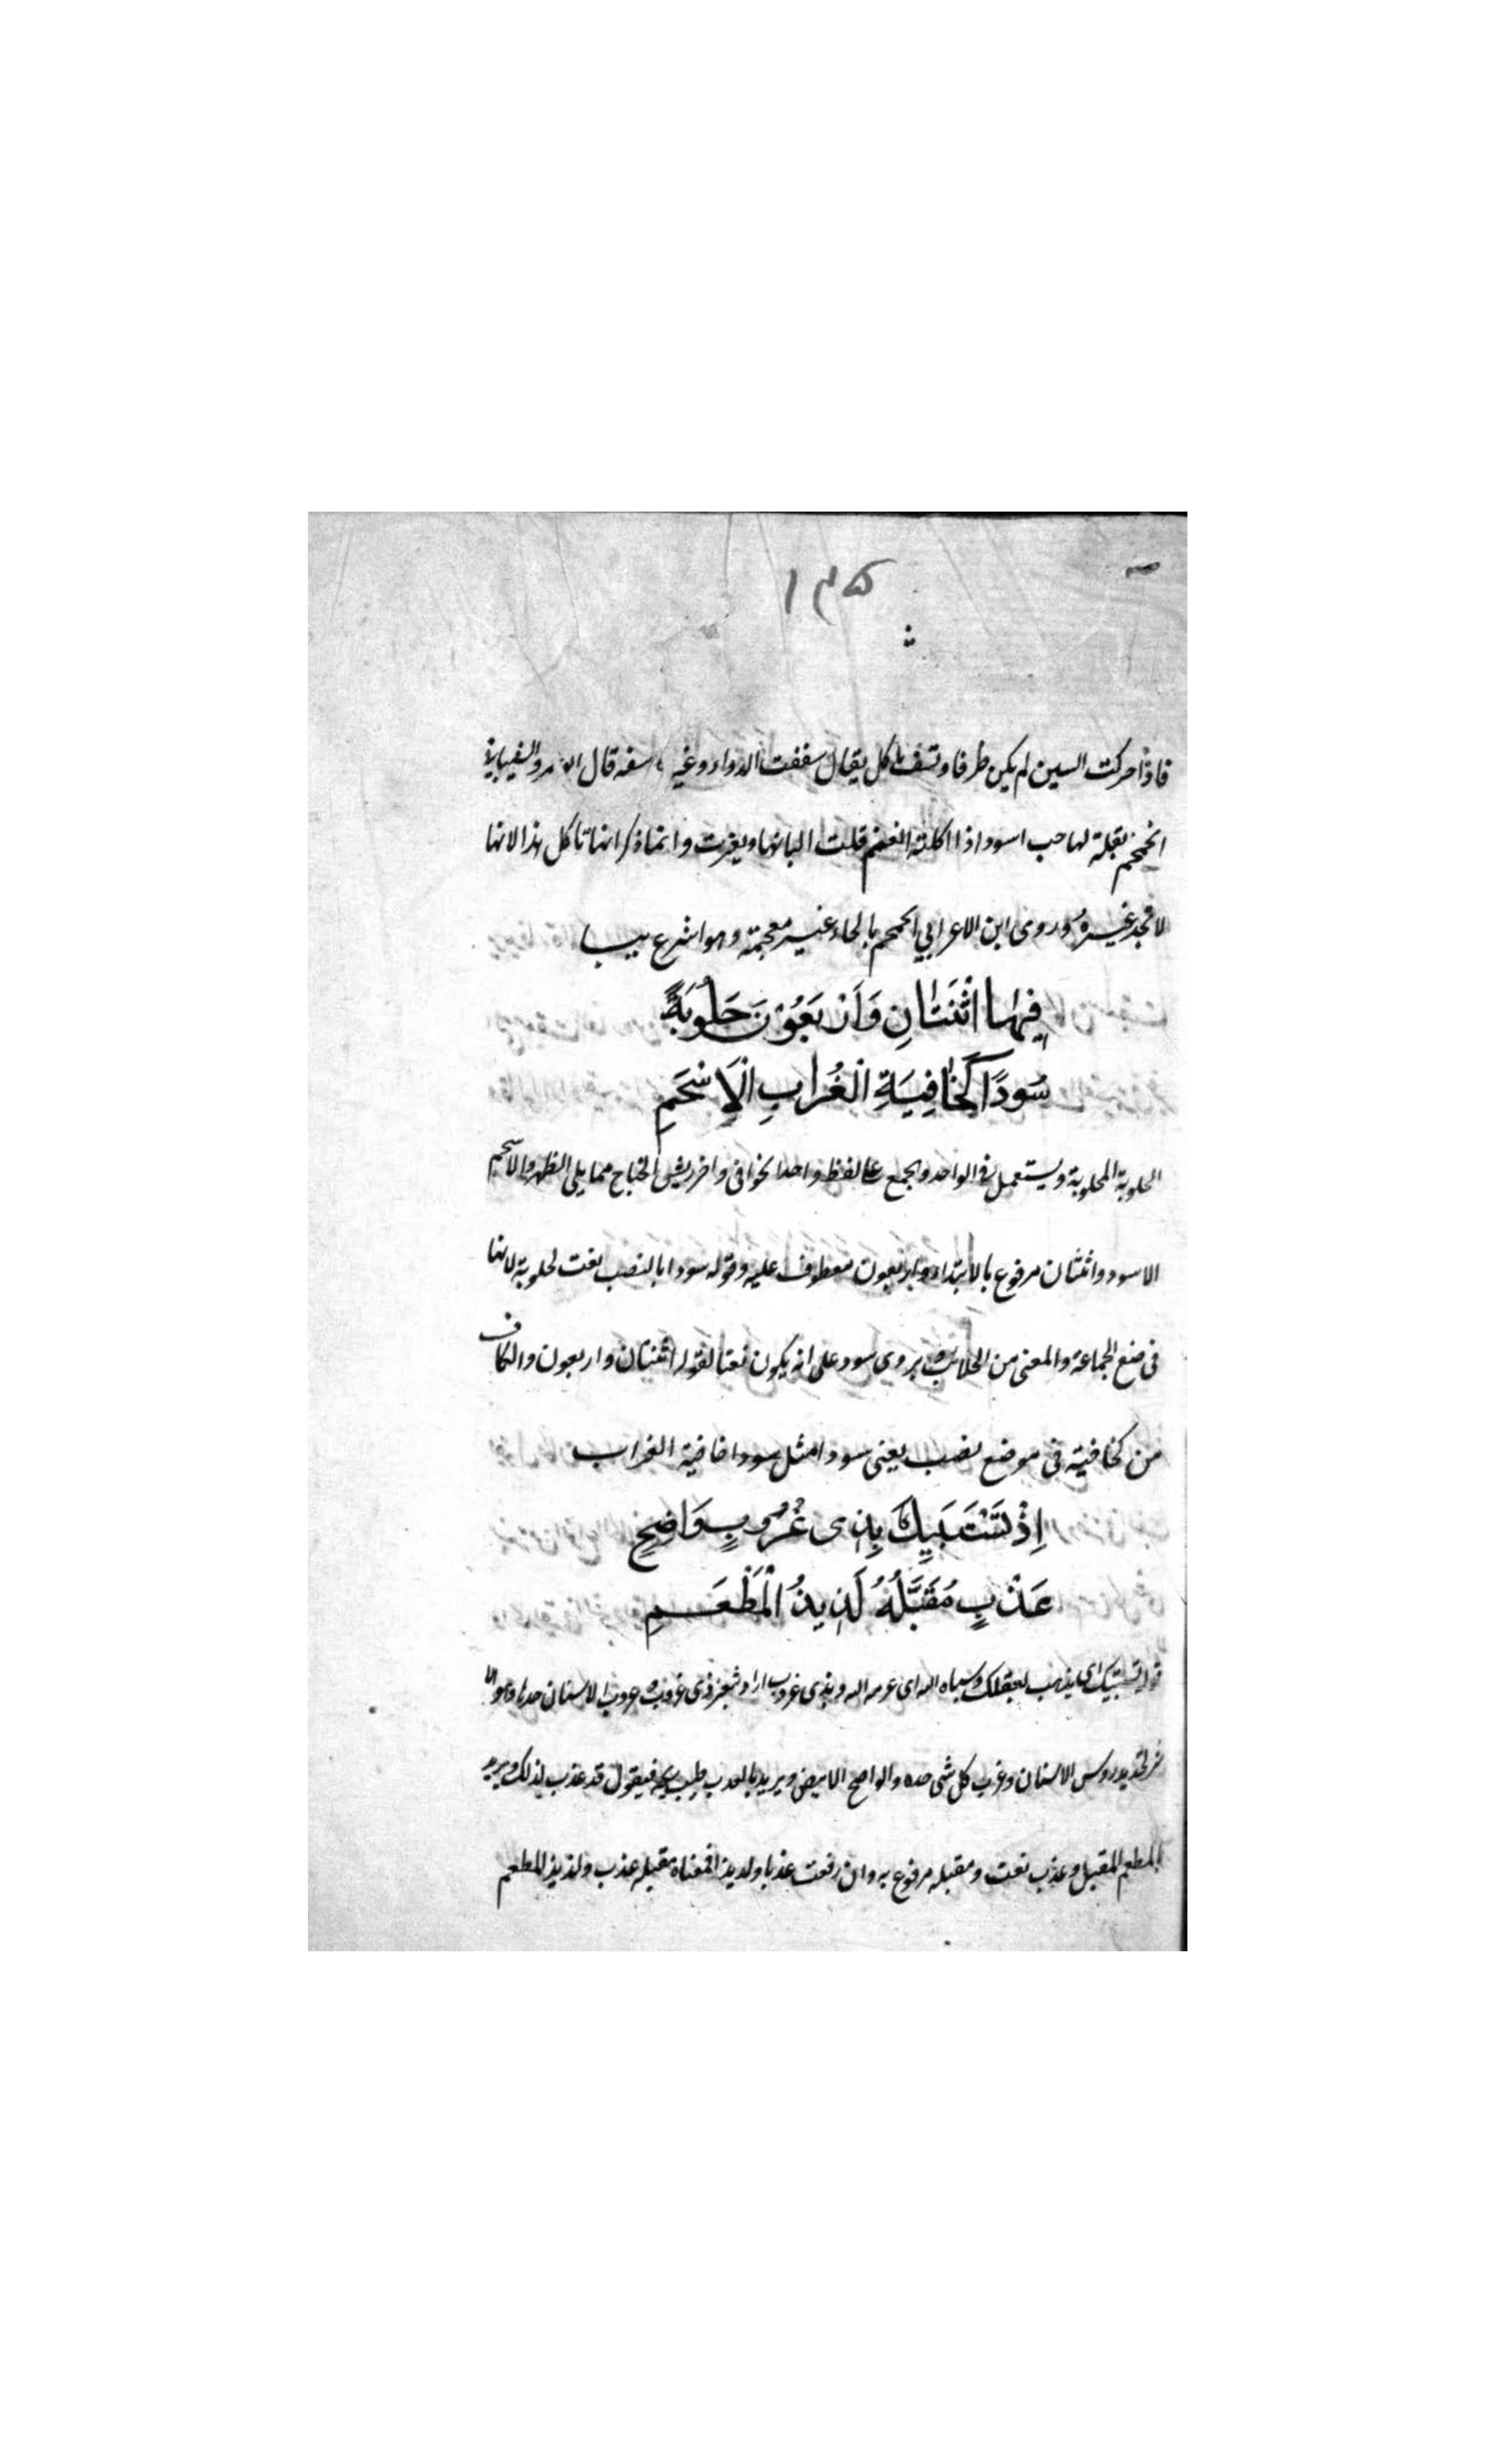 ١٣٥
فاذا حركت السين لم يكن ظرفا وتسف تاكل يقال سففت الدواء وغيره اسفه قال ابو عمرو الشيباني
الخمخم بقلة لها حب اسود اذا اكلته الغنم قلت البانها وتغيرت وانما ذكر انها تاكل هذا لانها
لا تجد غيره وروى ابن الاعرابي الحمحم بالحاء غير معجمة وهو اسرع يبسا
فِيهَا اثْنَتَانِ وَأَرْبَعُوْنَ حَلُوْبَةً
سُودًا كَخَافِيَةِ الْغُرَابِ الْاَسْحَمِ
الحلوبة المحلوبة ويستعمل فى الواحد والجمع على لفظ واحد الخوافى واخر ريش الجناح مما يلى الظهر والاسحم
الاسود واثنتان مرفوع بالابتداء واربعون معطوف عليه وقوله سودا بالنصب نعت لحلوبة لانها
فى موضع الجماعة والمعنى من الحلائب ويروى سود على انه يكون نعتا لقوله اثنتان واربعون والكاف
من كخافية فى موضع نصب يعنى سودا مثل سودا خافية الغراب
اِذْ تَسْتَبِيكَ بِذِى غُرُوبٍ وَاضِحٍ
عَذْبٍ مُقَبَّلُهُ لَذِيذُ الْمَطْعَمِ
قوله تستبيك اى يذهب بعقلك وسباه الله اى غربه الله وبذى غروب اراد بثغر ذى غروب وغروب الاسنان حدها وهو
تحديد روس الاسنان وغرب كل شى حده والواضح الابيض ويريد بالعذب طيب ريحه فيقول قد عذب لذلك ويريد
بالمطعم المقبل وعذب نعت ومقبله مرفوع به وان رفعت عذبا ولذيذا فمعناه مقبله عذب ولذيذ المطعم